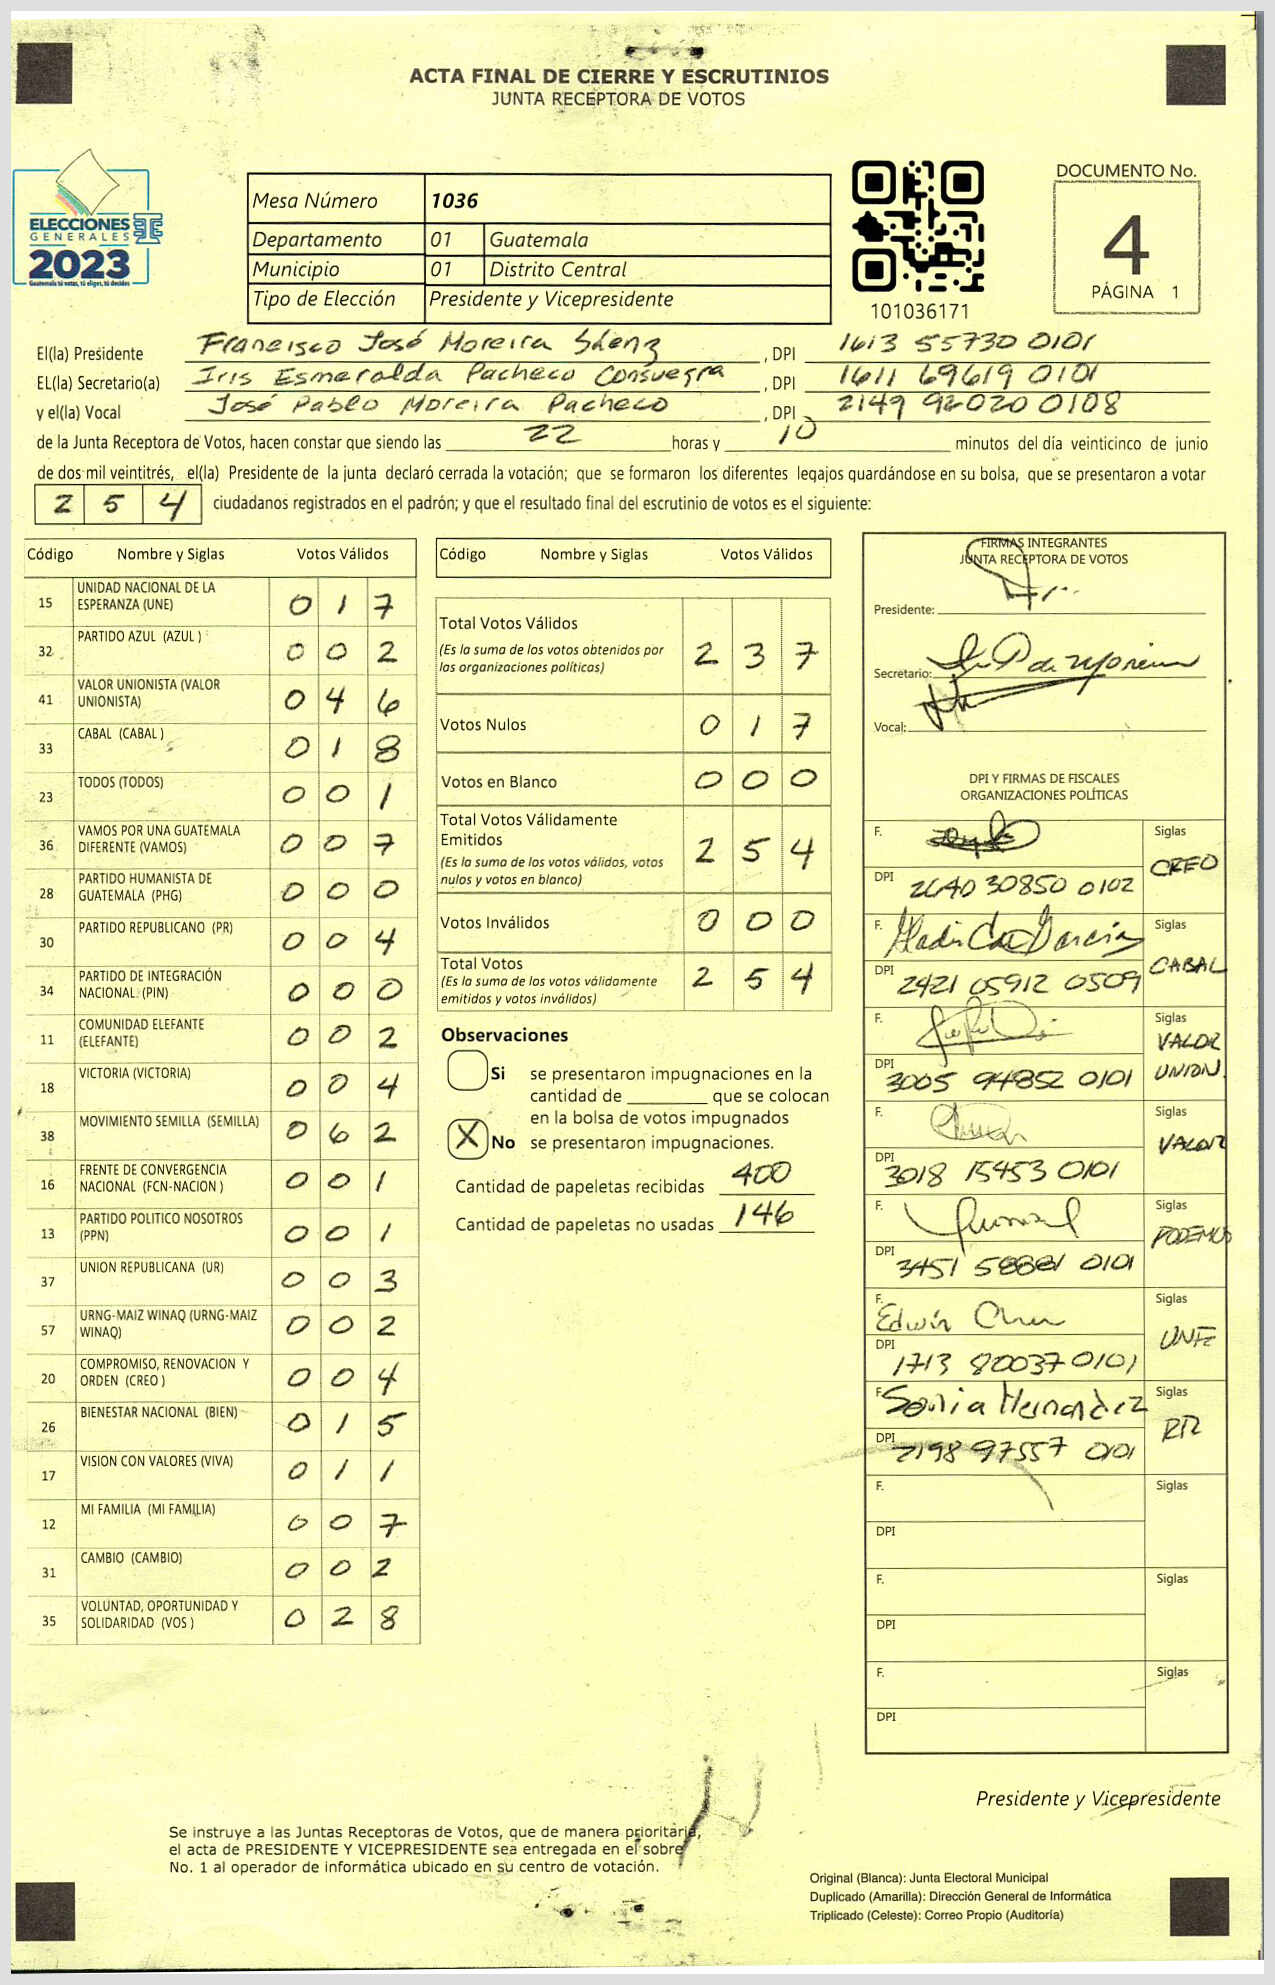 ACTA FINAL DE CIERRE Y ESCRUTINIOS
JUNTA RECEPTORA DE VOTOS
ELECCIONES
GENERALES
2023
Guatemala tú votas, tú eliges, tú decides
Mesa Número 1036
Departamento 01 Guatemala
Municipio 01 Distrito Central
Tipo de Elección Presidente y Vicepresidente
101036171
DOCUMENTO No.
4
PÁGINA 1
El(la) Presidente Francisco José Moreira Sáenz, DPI 1613 55730 0101
EL(la) Secretario(a) Iris Esmeralda Pacheco Consuegra, DPI 1611 69619 0101
y el(la) Vocal José Pablo Moreira Pacheco, DPI 2149 92020 0108
de la Junta Receptora de Votos, hacen constar que siendo las 22 horas y 10 minutos del día veinticinco de junio
de dos mil veintitrés, el(la) Presidente de la junta declaró cerrada la votación; que se formaron los diferentes legajos guardándose en su bolsa, que se presentaron a votar
254 ciudadanos registrados en el padrón; y que el resultado final del escrutinio de votos es el siguiente:
Código Nombre y Siglas Votos Válidos
15 UNIDAD NACIONAL DE LA ESPERANZA (UNE) 0 1 7
32 PARTIDO AZUL (AZUL ) 0 0 2
41 VALOR UNIONISTA (VALOR UNIONISTA) 0 4 6
33 CABAL (CABAL ) 0 1 8
23 TODOS (TODOS) 0 0 1
36 VAMOS POR UNA GUATEMALA DIFERENTE (VAMOS) 0 0 7
28 PARTIDO HUMANISTA DE GUATEMALA (PHG) 0 0 0
30 PARTIDO REPUBLICANO (PR) 0 0 4
34 PARTIDO DE INTEGRACIÓN NACIONAL (PIN) 0 0 0
11 COMUNIDAD ELEFANTE (ELEFANTE) 0 0 2
18 VICTORIA (VICTORIA) 0 0 4
38 MOVIMIENTO SEMILLA (SEMILLA) 0 6 2
16 FRENTE DE CONVERGENCIA NACIONAL (FCN-NACION ) 0 0 1
13 PARTIDO POLITICO NOSOTROS (PPN) 0 0 1
37 UNION REPUBLICANA (UR) 0 0 3
57 URNG-MAIZ WINAQ (URNG-MAIZ WINAQ) 0 0 2
20 COMPROMISO, RENOVACION Y ORDEN (CREO ) 0 0 4
26 BIENESTAR NACIONAL (BIEN) 0 1 5
17 VISION CON VALORES (VIVA) 0 1 1
12 MI FAMILIA (MI FAMILIA) 0 0 7
31 CAMBIO (CAMBIO) 0 0 2
35 VOLUNTAD, OPORTUNIDAD Y SOLIDARIDAD (VOS ) 0 2 8
Código Nombre y Siglas Votos Válidos
Total Votos Válidos
(Es la suma de los votos obtenidos por las organizaciones políticas) 2 3 7
Votos Nulos 0 1 7
Votos en Blanco 0 0 0
Total Votos Válidamente Emitidos
(Es la suma de los votos válidos, votos nulos y votos en blanco) 2 5 4
Votos Inválidos 0 0 0
Total Votos
(Es la suma de los votos válidamente emitidos y votos inválidos) 2 5 4
Observaciones
Si se presentaron impugnaciones en la
cantidad de ________ que se colocan
en la bolsa de votos impugnados
X No se presentaron impugnaciones.
Cantidad de papeletas recibidas 400
Cantidad de papeletas no usadas 146
FIRMAS INTEGRANTES
JUNTA RECEPTORA DE VOTOS
Presidente:
Secretario:
Vocal:
DPI Y FIRMAS DE FISCALES
ORGANIZACIONES POLÍTICAS
F. Siglas CREO
DPI 2640 30850 0102
F. Siglas CABAL
DPI 2421 05912 0509
F. Siglas VALOR UNION.
DPI 3005 94852 0101
F. Siglas VALOR
DPI 3018 15453 0101
F. Siglas PODEMOS
DPI 3451 58881 0101
F. Edwin Siglas UNE
DPI 1713 80037 0101
F. Sonia Hernandez Siglas
DPI 2198 97557 0101
F. Siglas
DPI
F. Siglas
DPI
F. Siglas
DPI
Presidente y Vicepresidente
Se instruye a las Juntas Receptoras de Votos, que de manera prioritaria,
el acta de PRESIDENTE Y VICEPRESIDENTE sea entregada en el sobre
No. 1 al operador de informática ubicado en su centro de votación.
Original (Blanca): Junta Electoral Municipal
Duplicado (Amarilla): Dirección General de Informática
Triplicado (Celeste): Correo Propio (Auditoría)